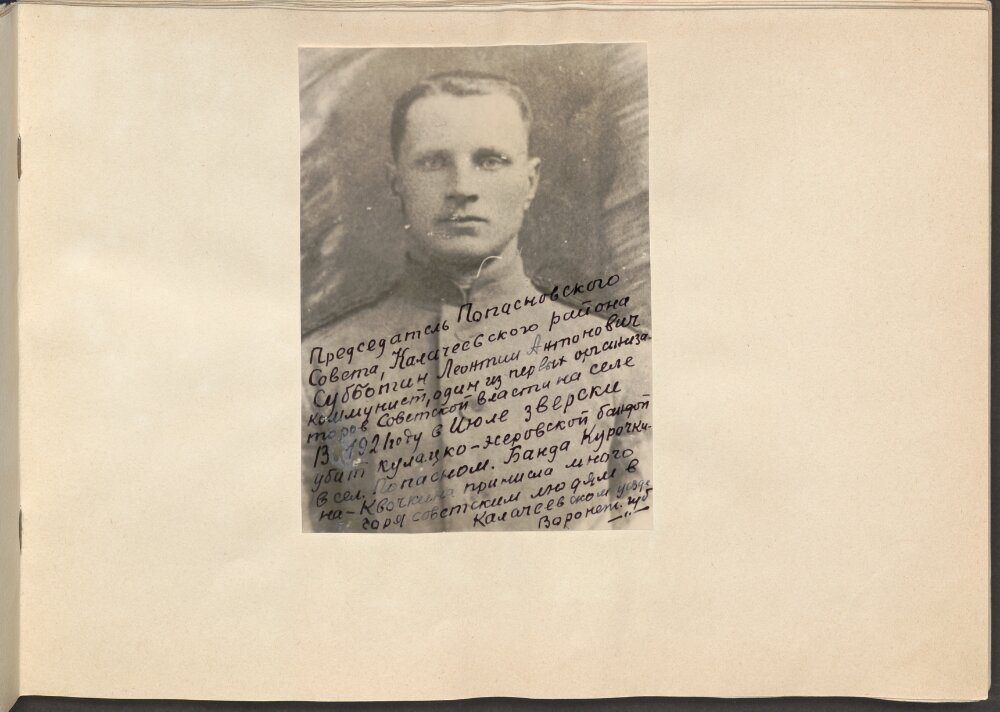 Председатель Попасновского
Совета, Калачеевского района
Субботин Леонтий Антонович
коммунист, один из первых организа-
торов Советской власти на селе
В 1921 году в Июле зверски
убит кулацко-эсеровской бандой
в сел. Попасном. Банда Курочки-
на-Квочкина принисла много
горя советским людям в
Калачеевском уезде
Воронеж. губ.